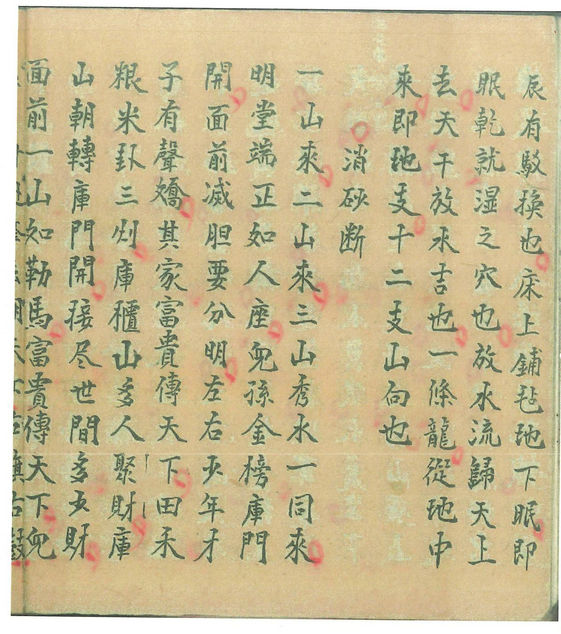 辰有駁換也床上鋪毡地下眠即
眠乾就湿之穴也放水流歸天上
去天干放水吉也一條龍從地中
來即地支十二支山向也
消砂断
一山來二山來三山秀水一同來
明堂端正如人座兒孫金榜庫門
開面前滅胆要分明左右火年才
子有聲嬌其家富貴傳天下田禾
粮米卧三州庫櫃山多人聚財庫
山朝轉庫門開接尽世間多少財
面前一山如勒馬富貴傳天下兒